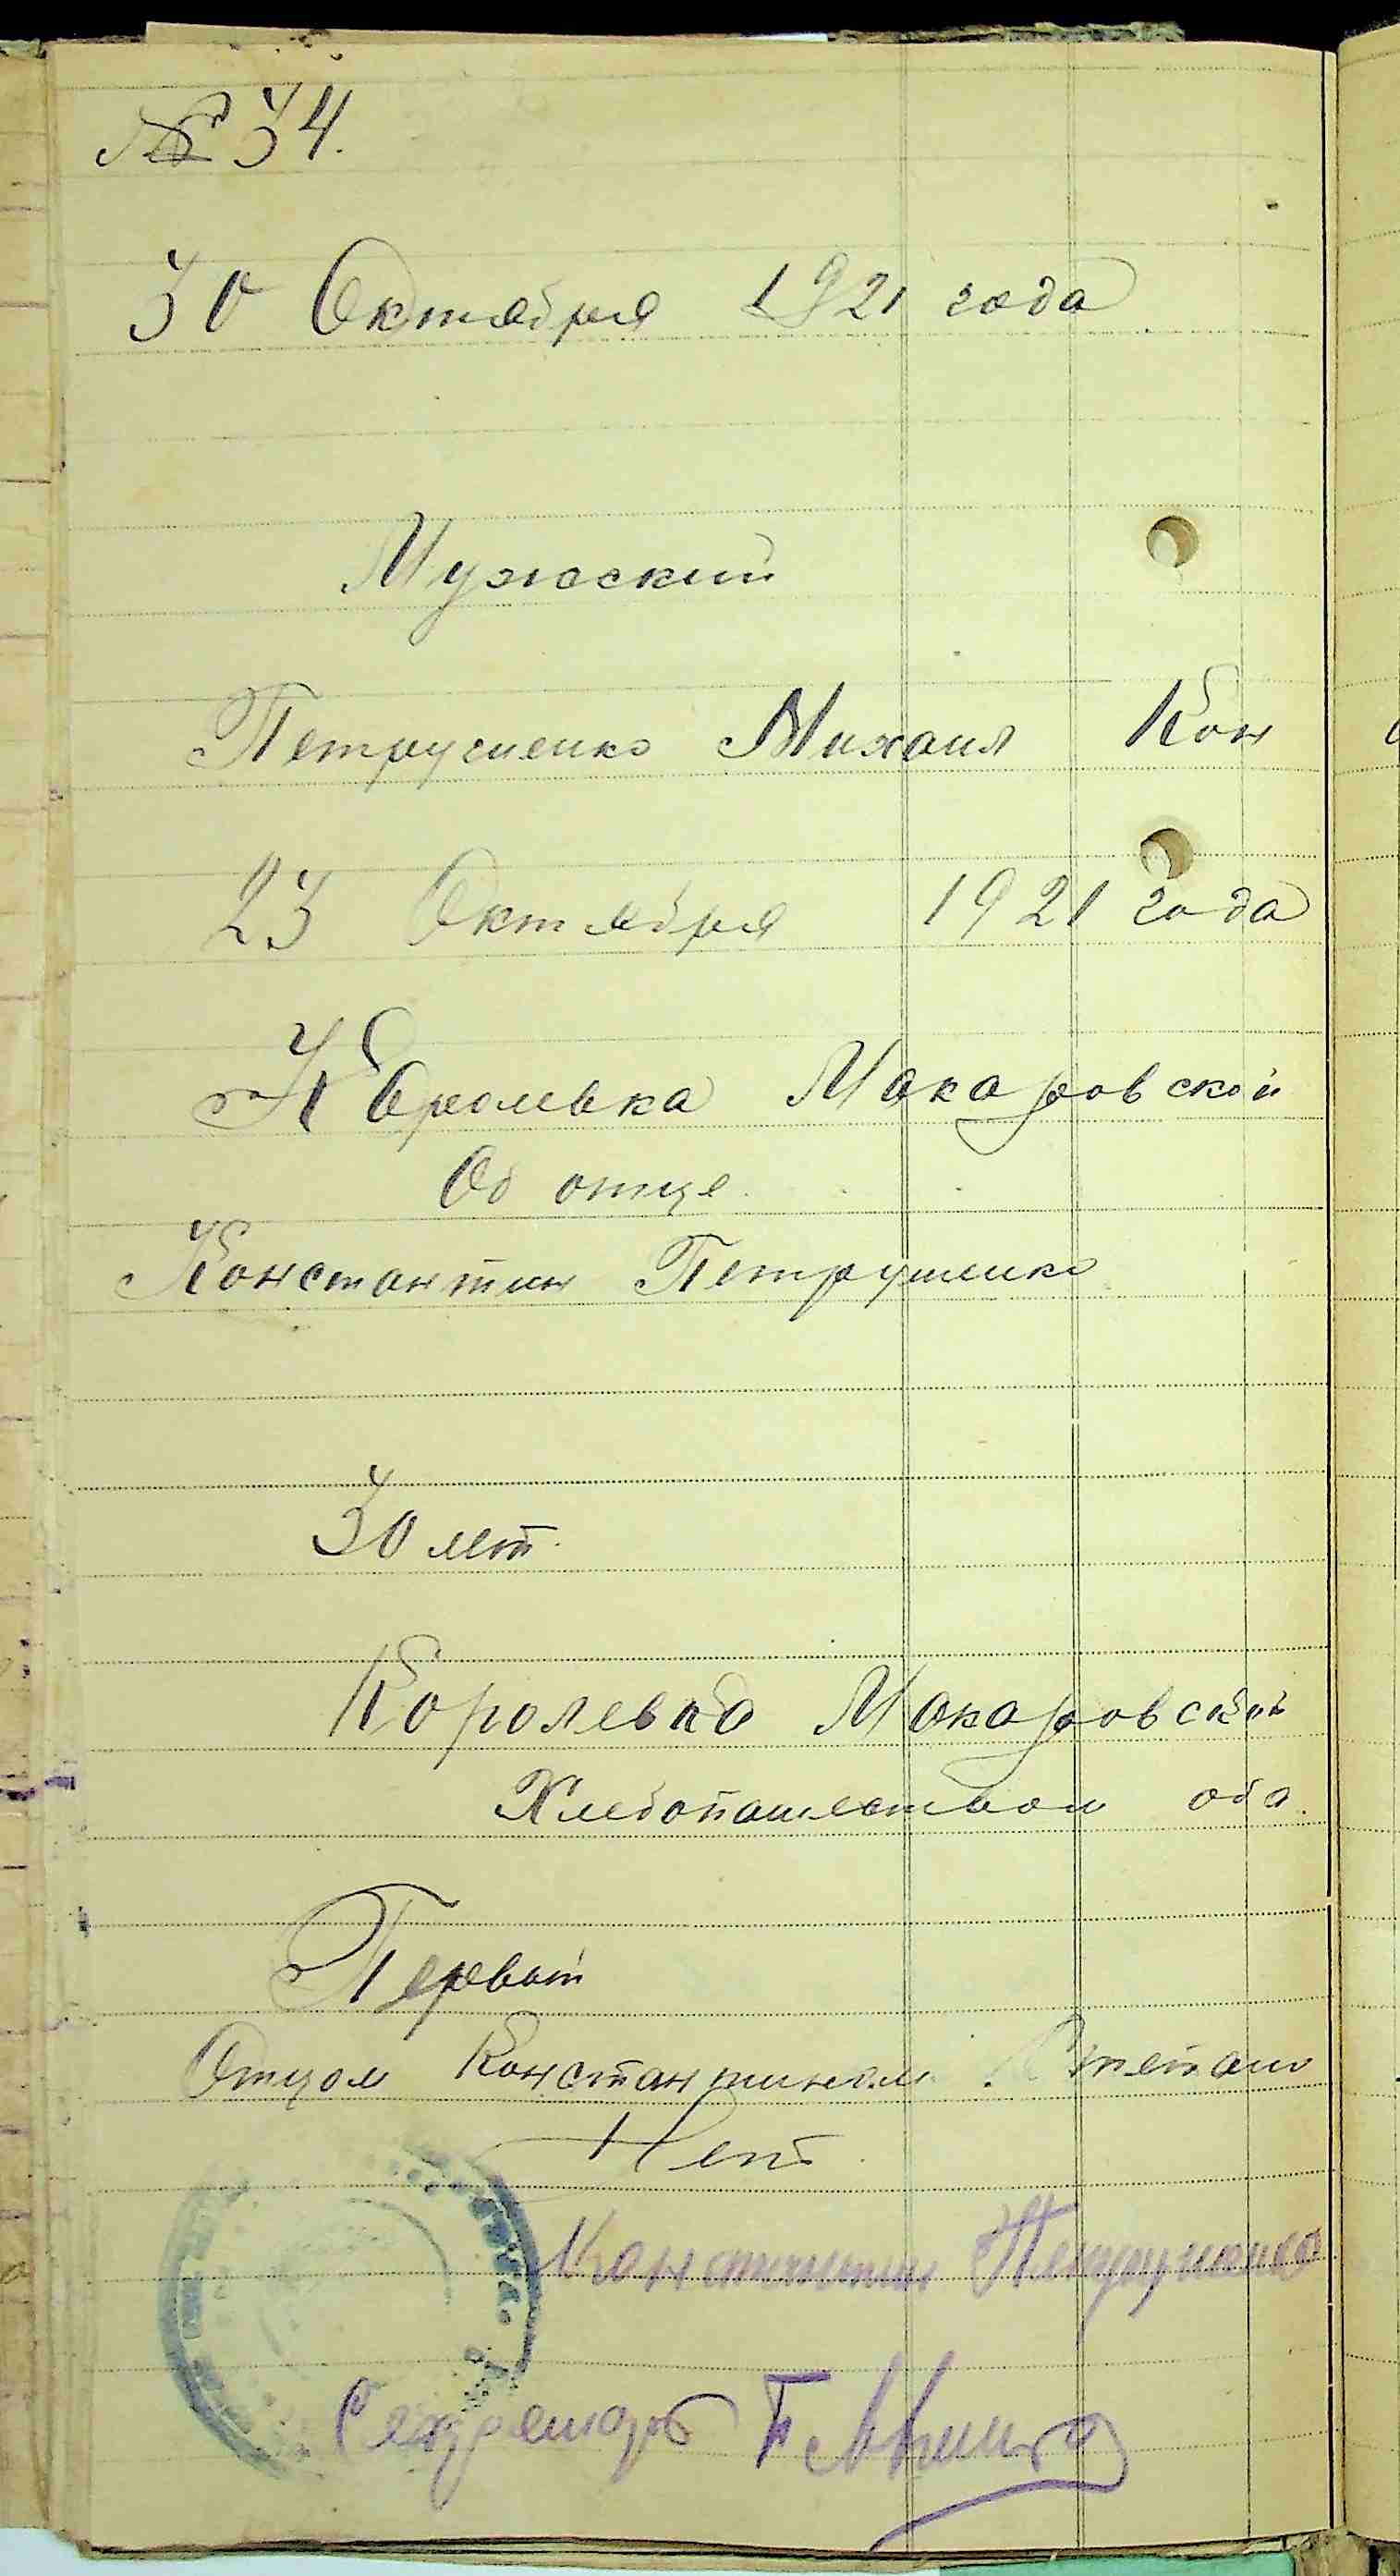 № 34.
30 Октября 1921 года
Мужский
Петрушенко Михаил Кон
23 Октября 1921 года
Королевка Макаровской
Об отце
Константин Петрушенко
30 лет.
Королевка Макаровской
Хлебопашеством оба
Первый
Отцом Константином Степан
Нет
Константин Петрушенко
Секретарь